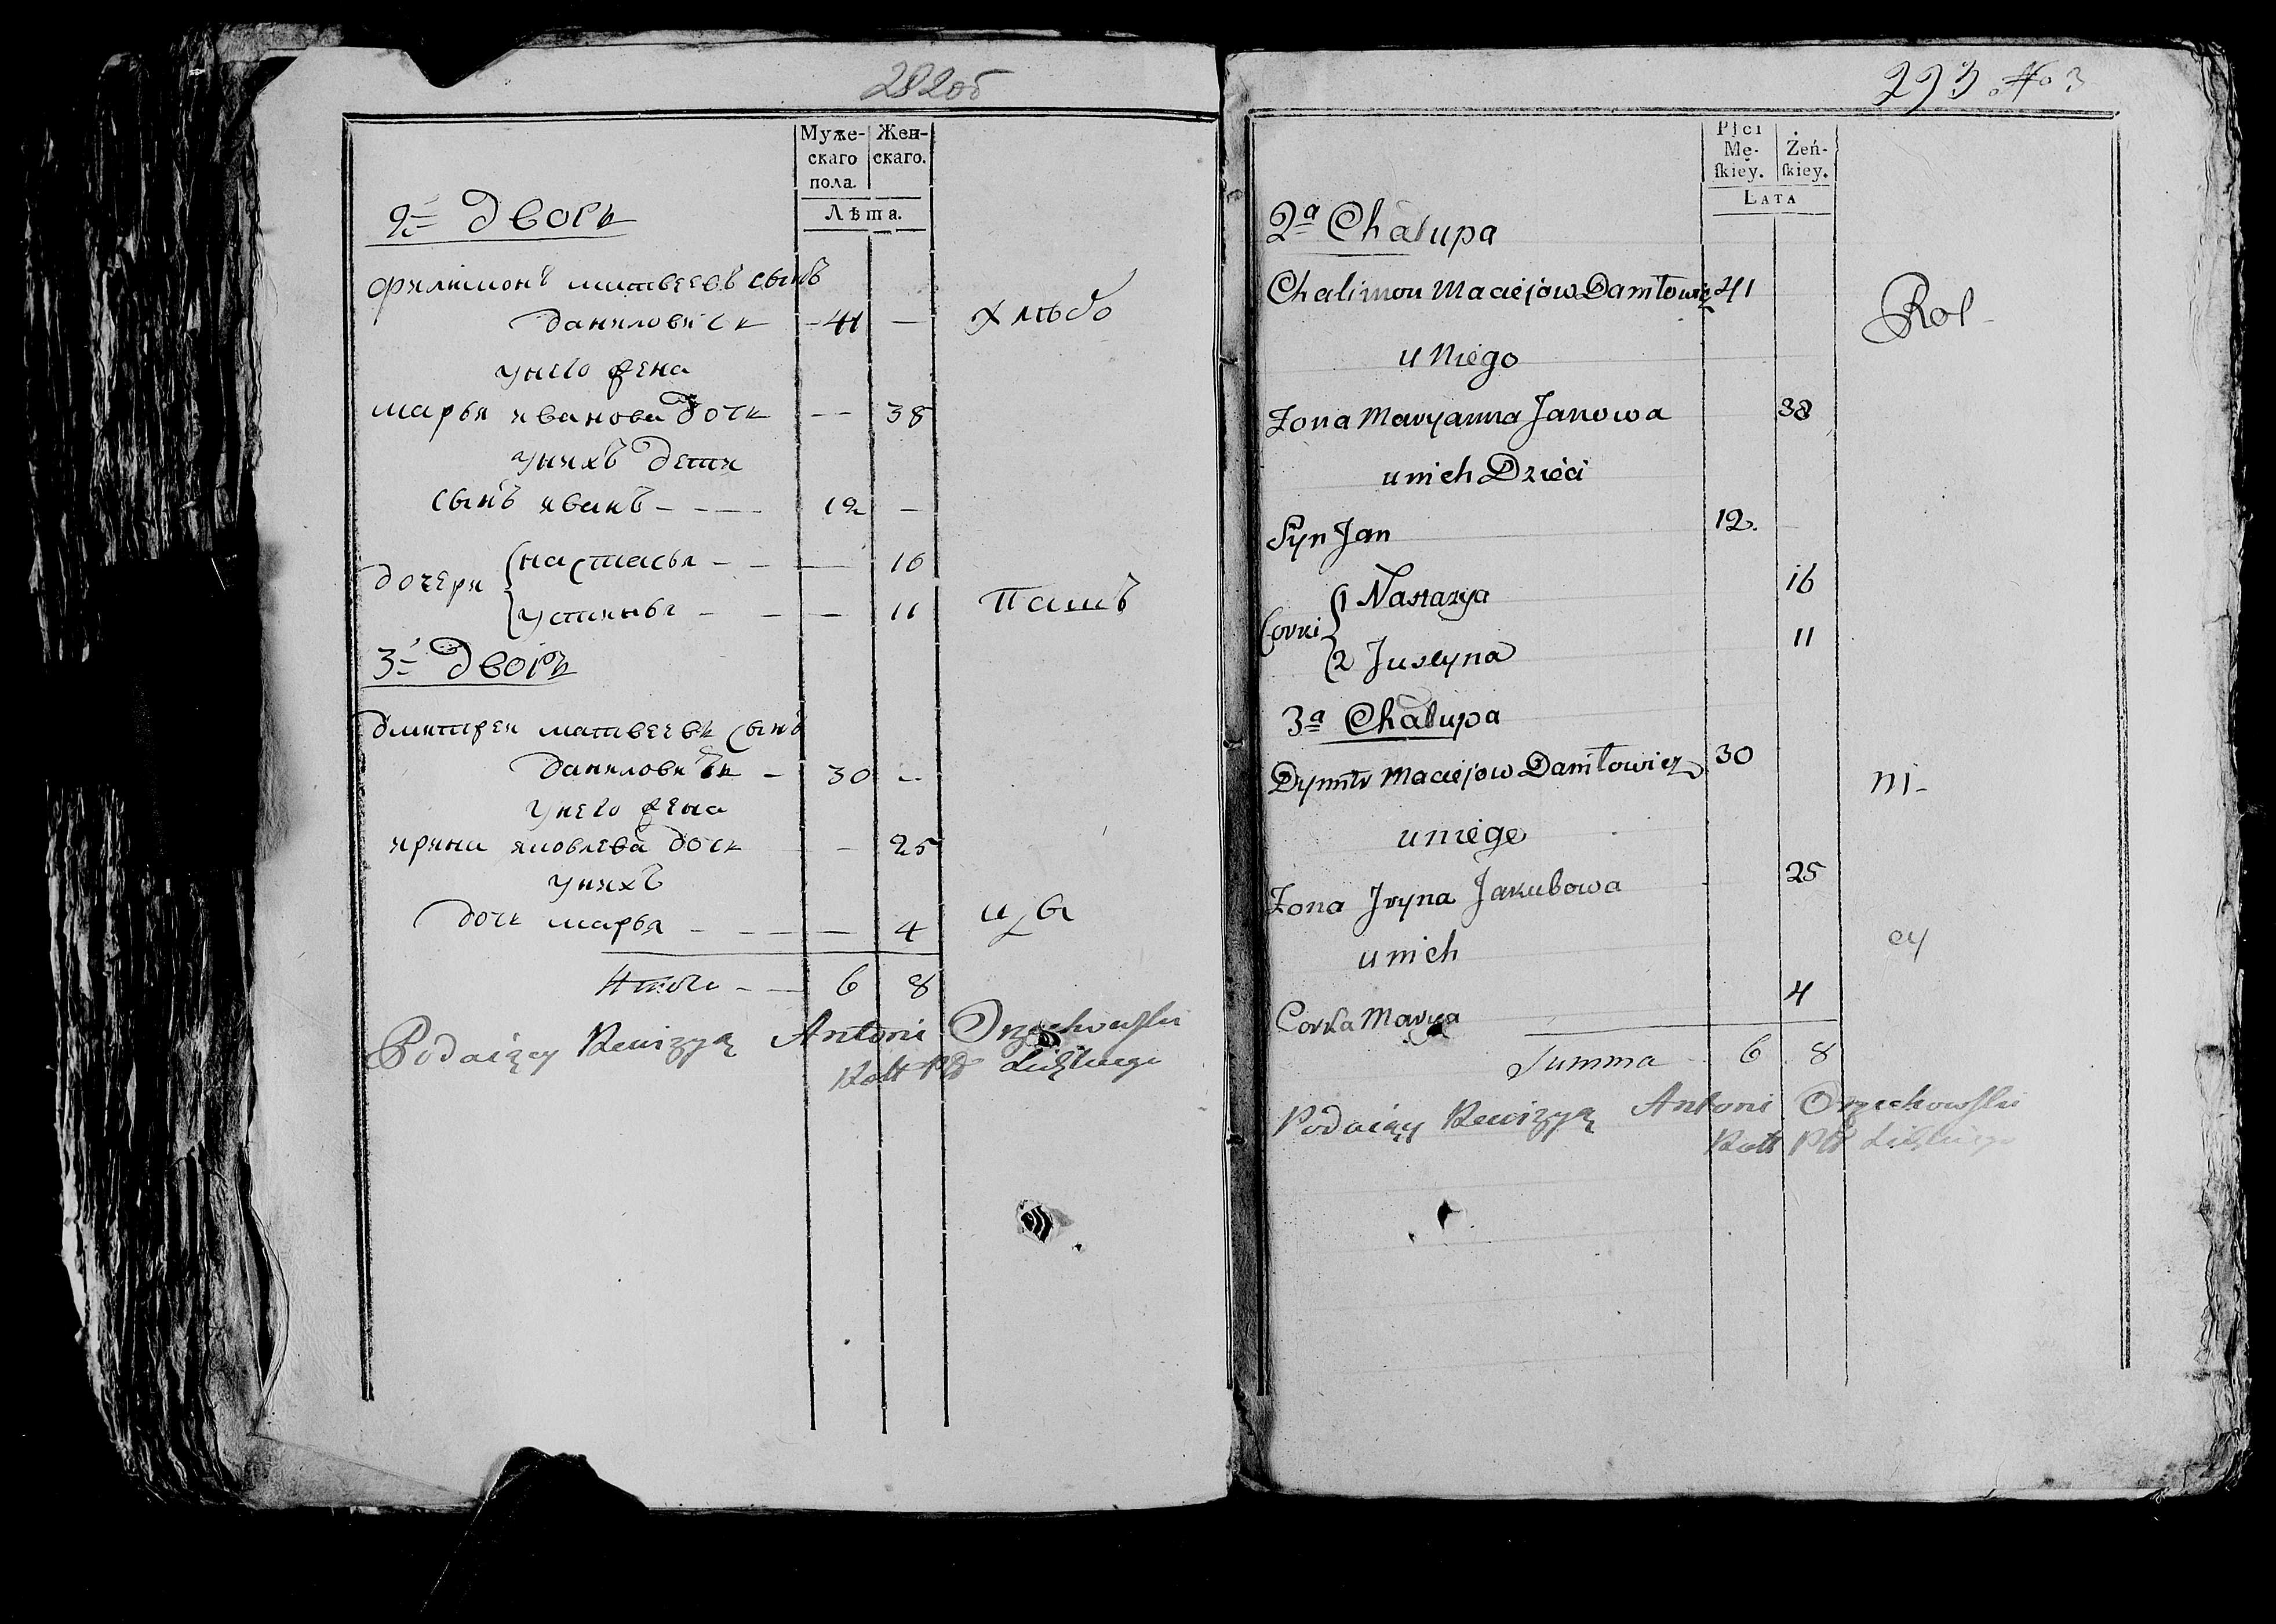 282об
Муже-
скаго
пола.
Жен-
скаго.
Лѣта.
2й дворъ
филимонъ матвеевъ сынъ
даниловичъ – 41 —
унего жена
марья иванова дочь — — 38
унихъ дети
сынъ иванъ – – – – 12 –
дочери
настасья – – — 16
устинья – – – 11
3й дворъ
дмитрей матвеевъ сынъ
даниловичъ – 30 –
унего жена
ирина яковлева дочь – 25
унихъ
дочь марья – – – — 4
Итого – – 6 8
хлѣбо
пашъ
цы
Podaiący Rewizyą Antoni Orzechowski
Rott
293 No 3
Płci
Mę-
ſkiey.
Żeń-
ſkiey.
LATA
2a Chałupa
Chalimon Maciejow Daniłowicz 41
u Niego
Zona Maryanna Janowa 38
u nich Dzieci
Syn Jan 12.
Corki
1 Nastazya 16
2 Justyna 11
3a Chałupa
Dymitr Maciejow Daniłowicz 30
u niego
Zona Iryna Jakubowa 25
u nich
Corka Marya 4
Summa 6 8
Rol-
ni-
cy
Podaiący Rewizyą Antoni Orzechowſki
Rott